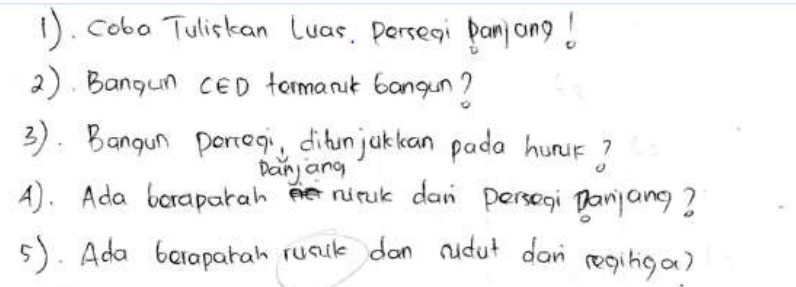 1). Coba Tuliskan Luas. Persegi Panjang!
2). Bangun CED termasuk bangun?
3). Bangun persegi, ditunjukkan pada huruf?
Panjang
4). Ada berapakah rusuk dari Persegi Panjang?
5). Ada berapakah rusuk dan sudut dari segitiga?